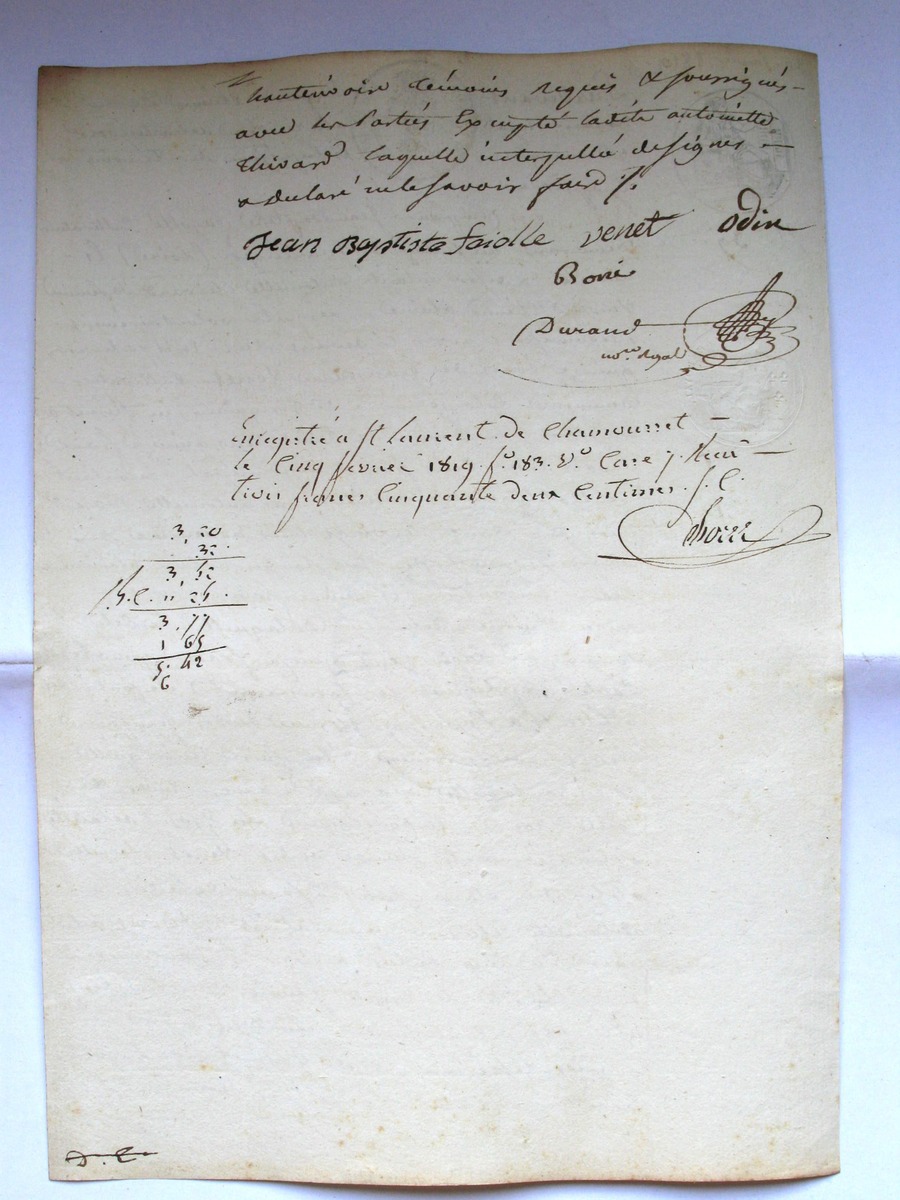 hauterivoire témoins requis & soussignés
avec les Parties Excepté ladite antoinette
thivard laquelle interpellée de signer
a declaré ne le savoir faire ./.
Jean Baptiste faiolle venet odin
Boué
Durand
no.re Royal
Enregistré à St Laurent de Chamousset
le Cinq fevrier 1819. f.o 183. V.o Case 7. Reçu
trois francs Cinquante deux Centimes. S. C.
3, 20
32.
3, 52
11 25.
3, 77
1 65
5. 42
6